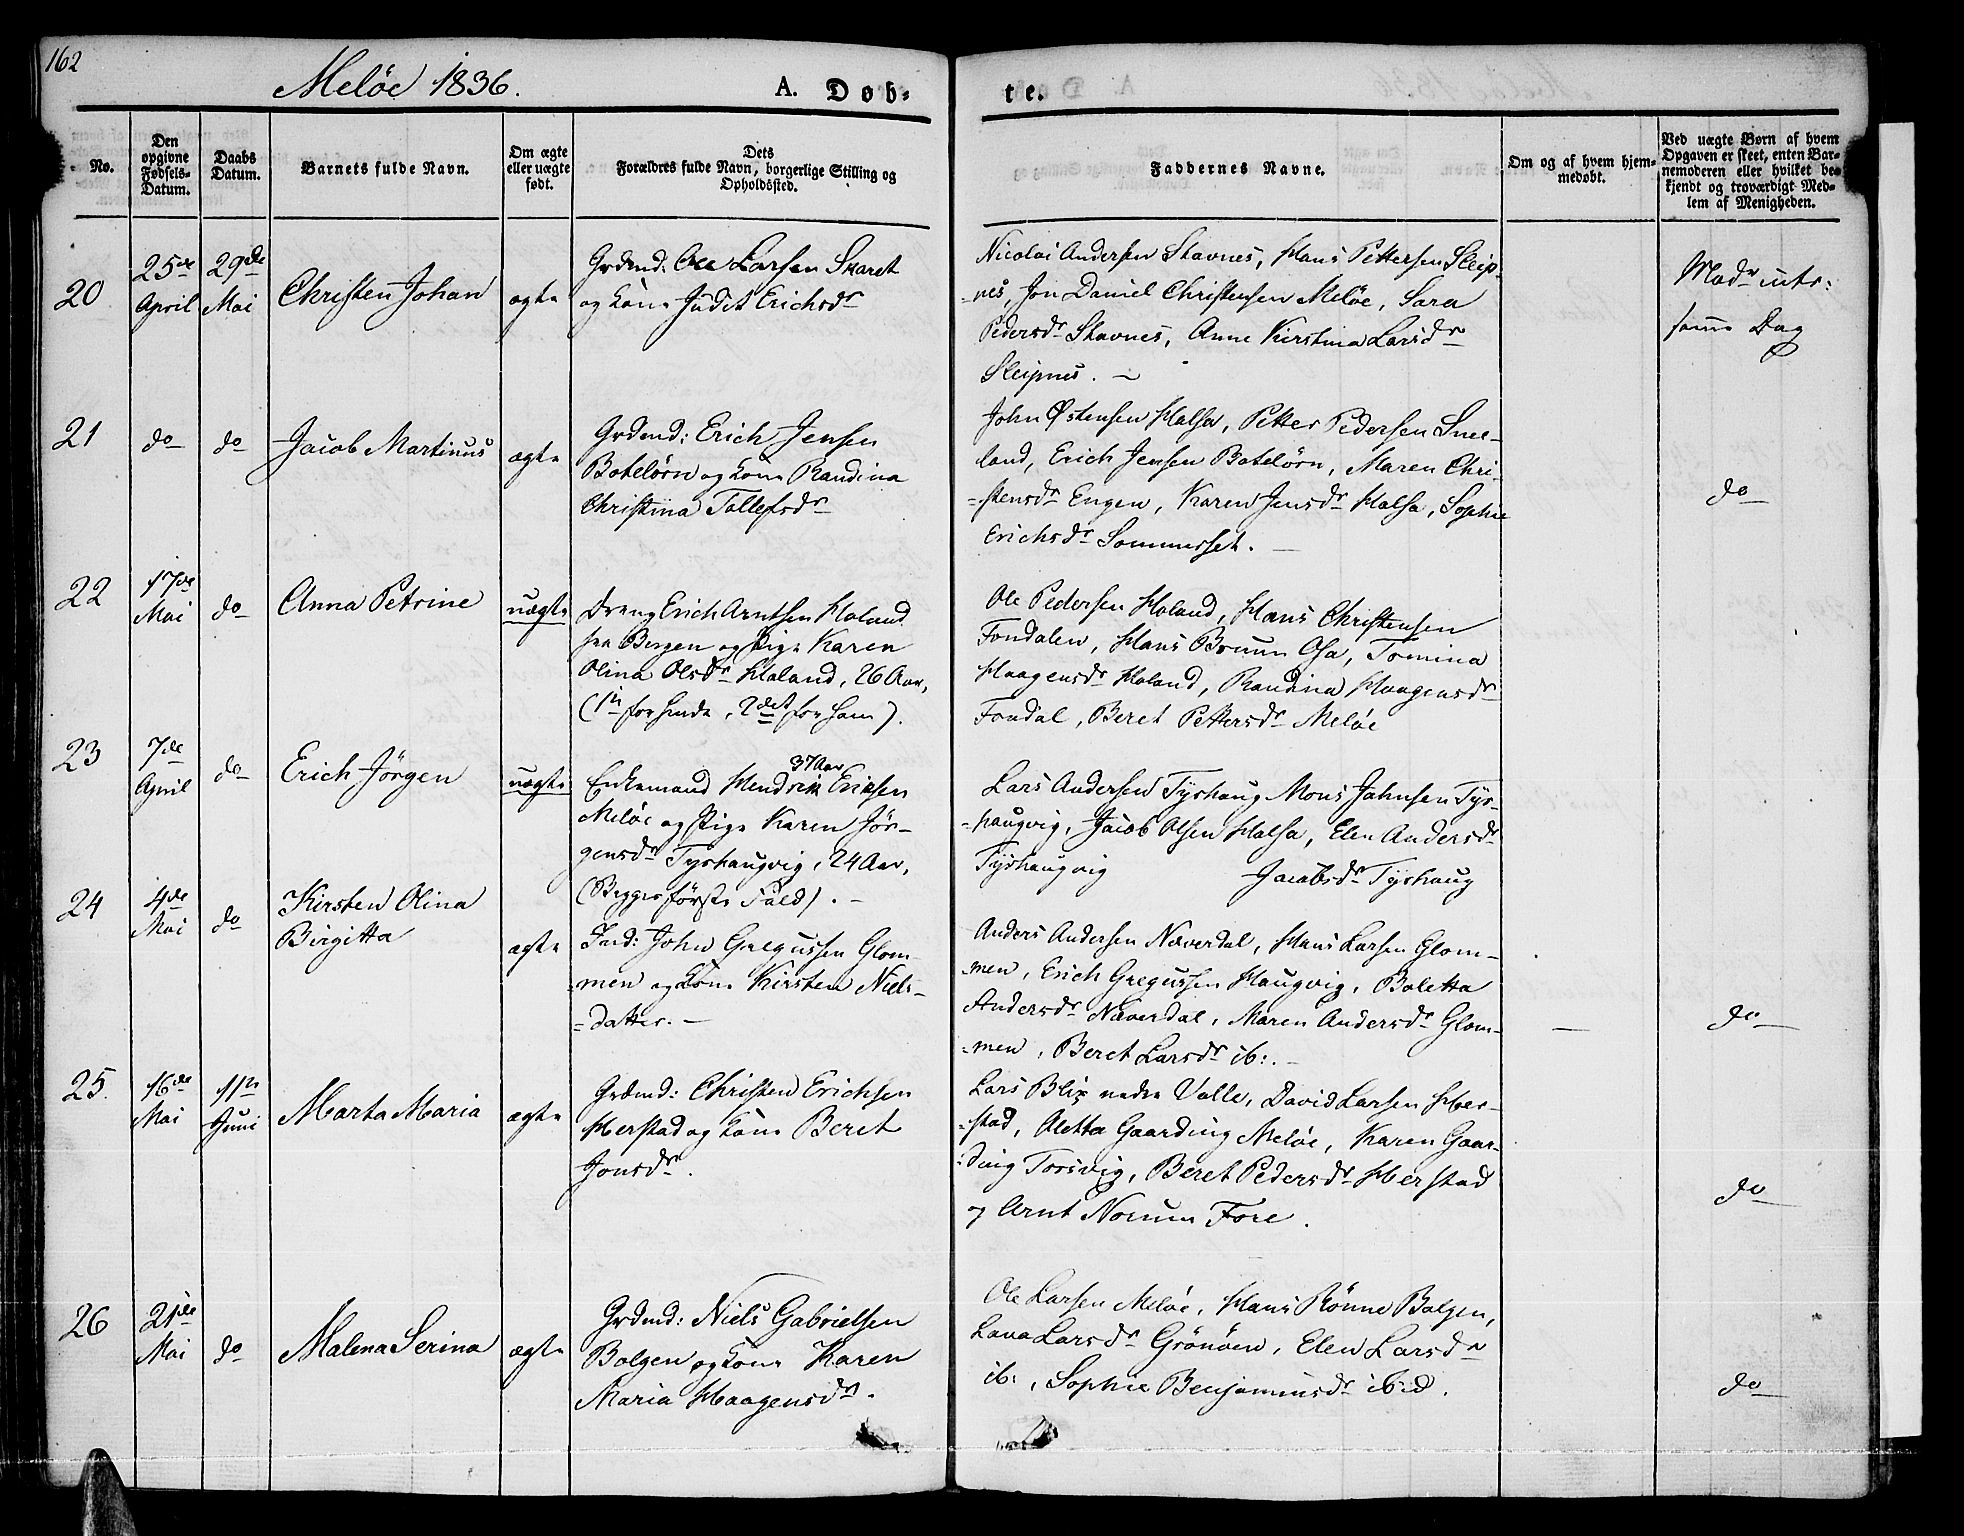 162
Meløe 1836.
A. Døb-
te.
No.
Den opgivne Fødsels-Datum.
Daabs Datum.
Barnets fulde Navn.
Om ægte eller uægte født.
Dets Forældres fulde Navn, borgerlige Stilling og Opholdssted.
Faddernes Navne.
Om og af hvem hjem-medøbt.
Ved uægte Børn af hvem Opgaven er skeet, enten Bar-nemoderen eller hvilket be-kjendt og troværdigt Med-lem af Menigheden.
20
25de April
29de Mai
Christen Johan
ægte
Grdmd: Ole Larsen Skaret
og Kone Judit Erichsdr
Nicolai Andersen Stavnes, Hans Pettersen Sleip-
-nes, Jon Daniel Christensen Meløe, Sara
Pedersdr Stavnes, Anne Kirstina Larsdr
Sleipnes. —
Modr intr:
samme Dag
21
do
do
Jacob Martinus
ægte
Grdmd: Erich Jensen
Botelørn og Kone Randina
Christina Tollefsdr
John Østensen Halsa, Petter Pedersen Snee-
land, Erich Jensen Botelørn, Maren Chri-
-stensdr Engen, Karen Jensdr Halsa, Sophie
Erichsdr Sommerset. —
do
22
17de Mai
do
Anna Petrine
uægte
Dreng Erich Arntsen Haland
fra Bergen og Pige Karen
Olina Olsdr Haland, 26 Aar,
(1ste for hende, 2det for ham).
Ole Pedersen Haland, Hans Christensen
Fondalen, Hans Bruun Osa, Tomina
Haagensdr Haland, Randina Haagensdr
Fondal, Beret Pettersdr Meløe
23
7de April
do
Erich Jörgen
uægte
37 Aar
Enkemand Hendrik Eriksen
Meløe og Pige Karen Jör-
gensdr Tyshaugvig, 24 Aar,
(Begges første Fald). —
Lars Andersen Tyshaug Mons Johnsen Tys-
-haugvig, Jacob Olsen Halsa, Elen Andersdr
Tyshaugvig Jacobsdr Tyshaug
24
4de Mai
do
Kirsten Olina
Birgitta
ægte
Ind: John Gregussen Glom-
-men og Kone Kirsten Niels-
-datter. —
Anders Andersen Næverdal, Hans Larsen Glom-
-men, Erich Gregussen Haugvig, Boletta
Andersdr Næverdal, Maren Andersdr Glom-
-men, Beret Larsdr ib:. —
—
do
25.
16de Mai
11te Juni
Marta Maria
ægte
Grdmd: Christen Erichsen
Herstad og Kone Beret
Jonsdr.
Lars Blix nedre Valle, David Larsen Her-
-stad, Aletta Gaarding Meløe, Karen Gaar-
-ding Torsvig, Beret Pedersdr Herstad
og Arnt Norum Fore.
do
26
21de Mai
do
Malena Serina
ægte
Grdmd: Niels Gabrielsen
Bolgen og Kone Karen
Maria Haagensdr.
Ole Larsen Meløe, Hans Rönne Bolgen,
Lava Larsdr Grönöen, Elen Larsdr
ib:, Sophie Benjaminsdr ibid.
do